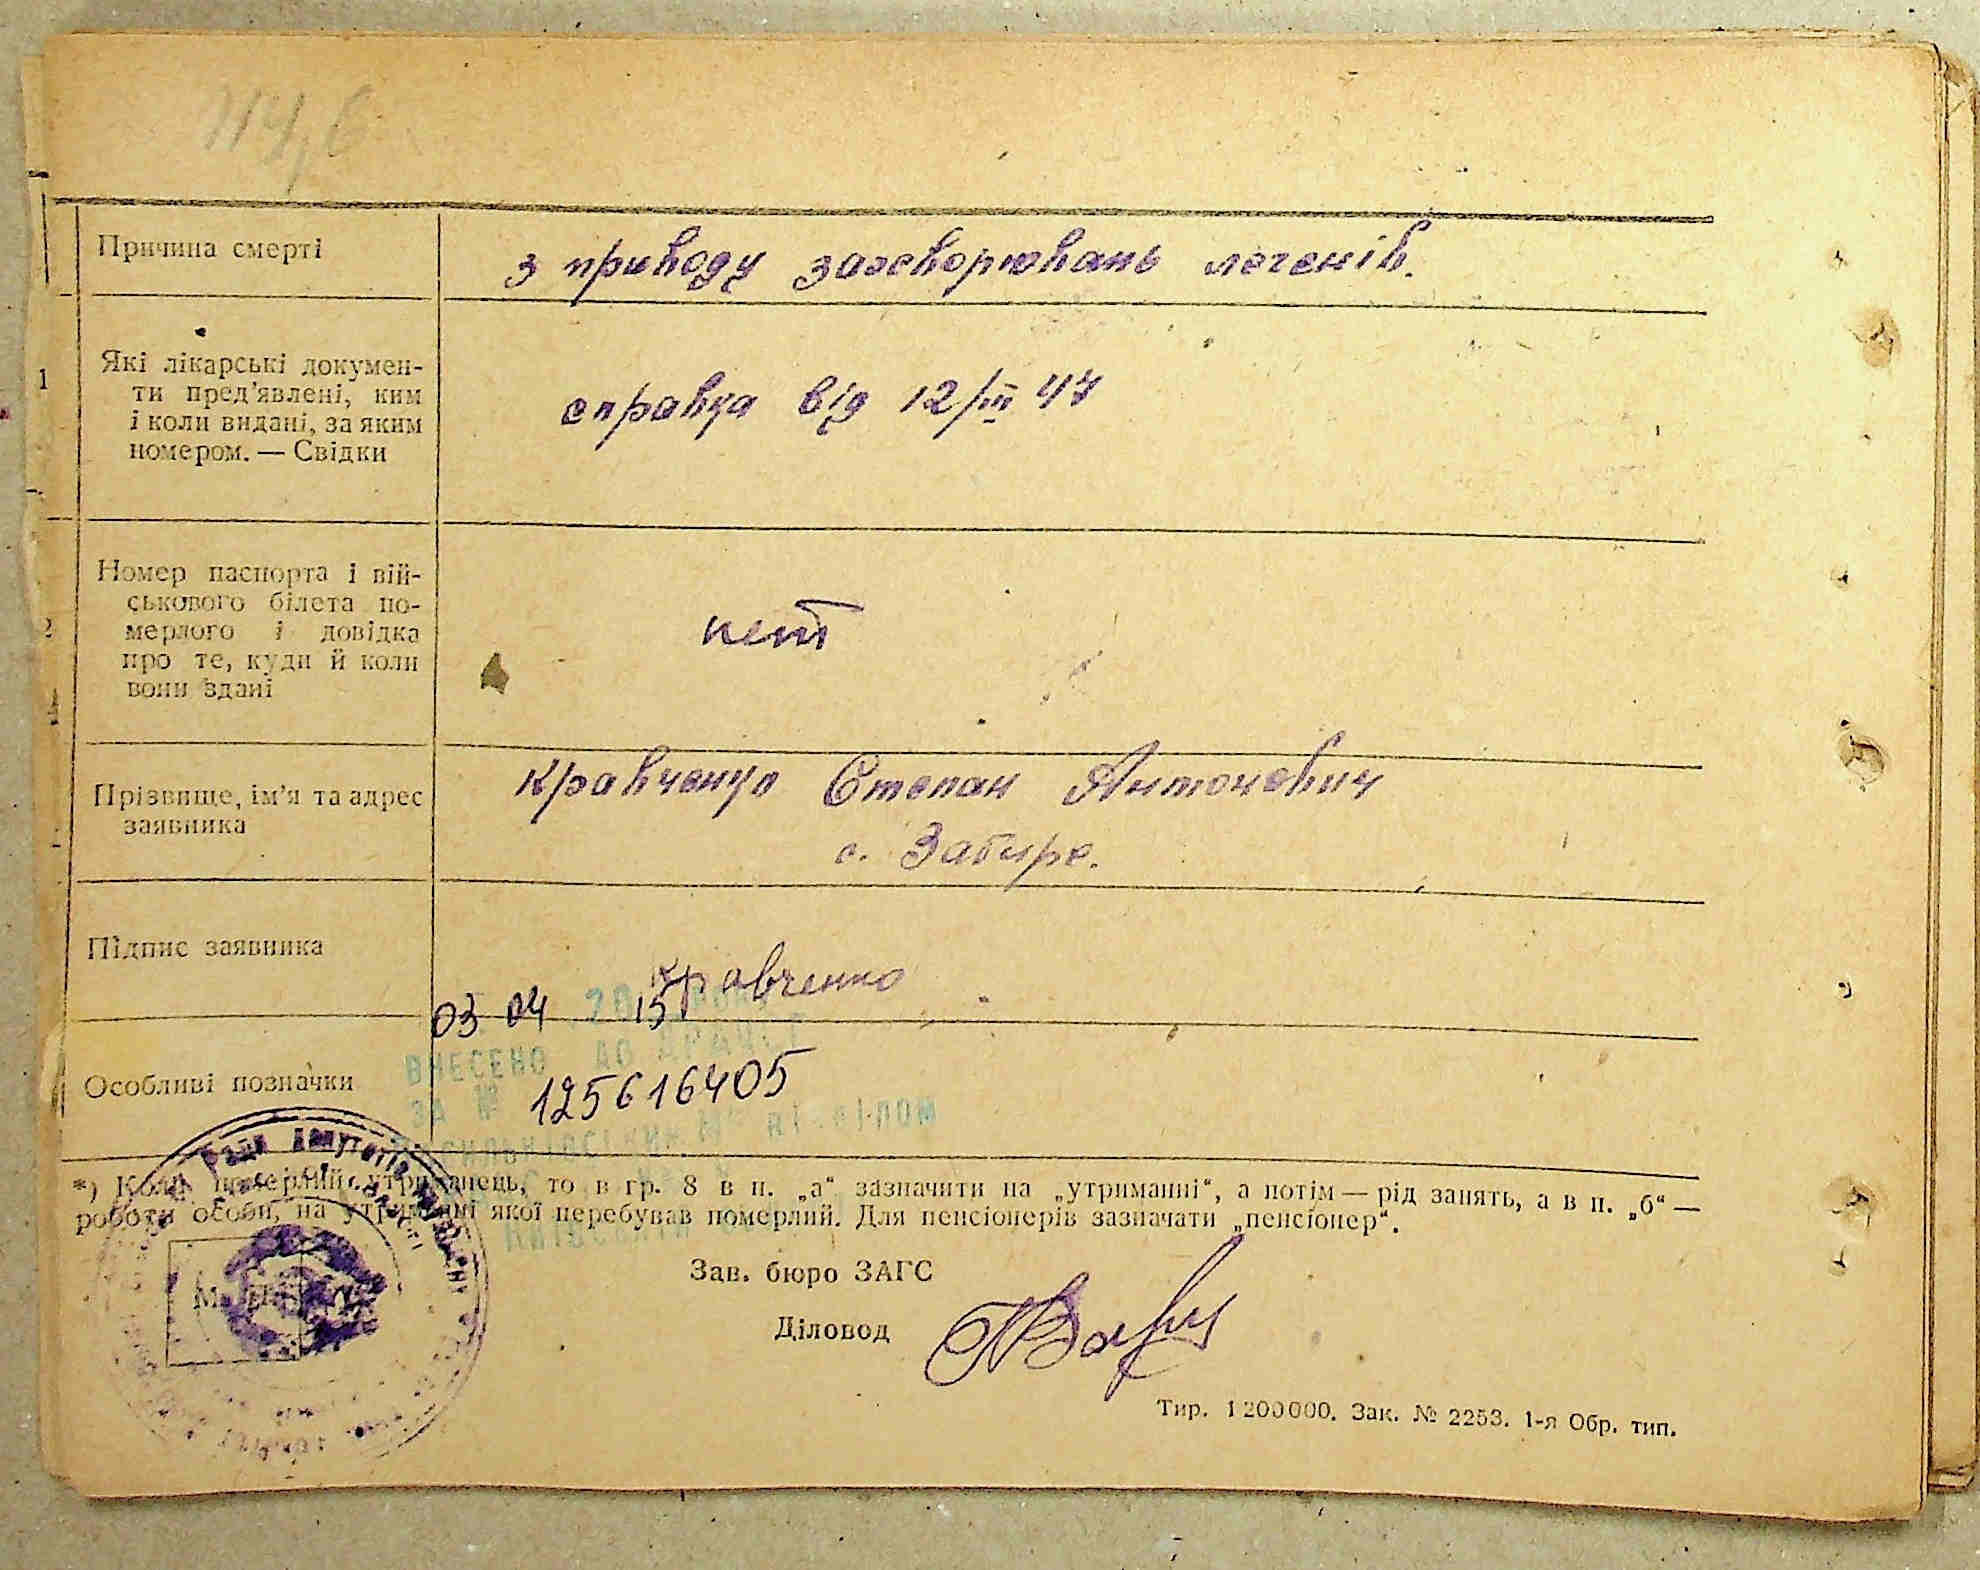 114,6
Причина смерті
з приводу захворювань легенів.
1
Які лікарські докумен-
ти пред'явлені, ким
і коли видані, за яким
номером. — Свідки
справка від 12/III 47
2
Номер паспорта і вій-
ськового білета по-
мерлого і довідка
про те, куди й коли
вони здані
нет
Прізвище, ім'я та адрес
заявника
Кравченко Степан Антонович
с. Забирє.
Підпис заявника
Кравченко
03 04 2015
ВНЕСЕНО ДО ДРАЦСГ
Особливі позначки
ЗА № 125616405
*) Коли померлий утриманець, то в гр. 8 в п. „а“ зазначити на „утриманні“, а потім — рід занять, а в п. „б“ —
роботи особи, на утриманні якої перебував померлий. Для пенсіонерів зазначати „пенсіонер“.
Зав. бюро ЗАГС
Діловод
Тир. 1200000. Зак. № 2253. 1-я Обр. тип.